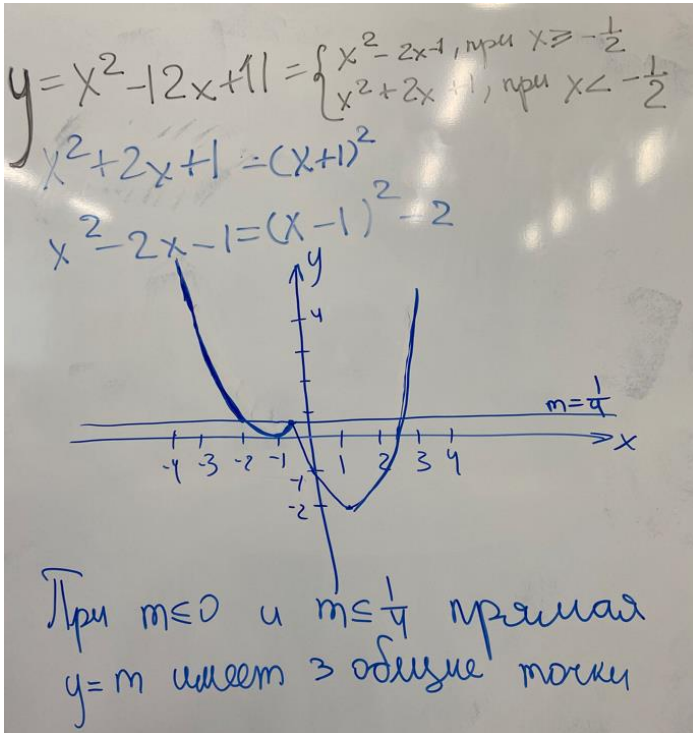 y=x²-|2x+1|={x²-2x-1, при x≥-1/2
x²+2x+1, при x<-1/2
x²+2x+1=(x+1)²
x²-2x-1=(x-1)²-2
y
4
m=1/4
-4 -3 -2 -1 1 2 3 4 x
-1
-2
При m≤0 и m≤1/4 прямая
y=m имеет 3 общие точки